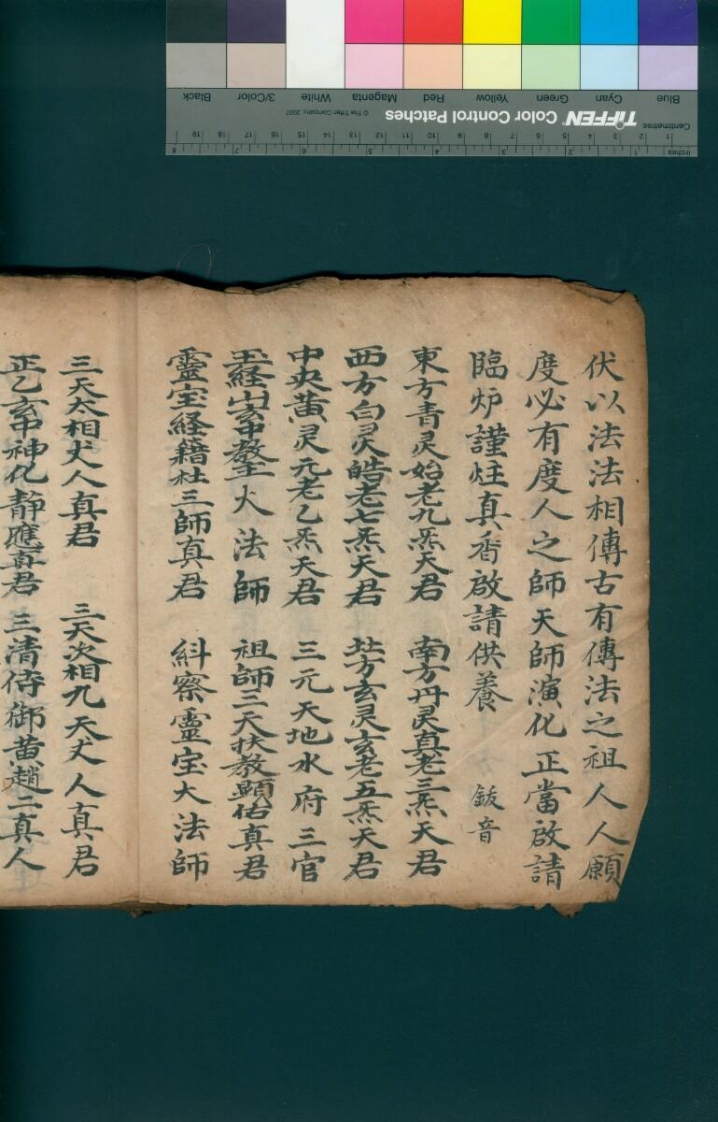 伏以法法相傳古有傳法之祖人人願
度必有度人之師天師演化正當啟請
臨炉謹炷真香啟請供養 鈸音
東方青灵始老九炁天君 南方丹灵真老三炁天君
西方白灵皓老七炁天君 北方玄灵玄老五炁天君
中央黄灵元老乙炁天君 三元天地水府三官
玉経山玄中教主大法師 祖師三天扶教顯佑真君
靈宝経籍杜三師真君 糾察靈宝大法師
三天太相丈人真君 三天次相九天丈人真君
正乙玄中神化静應真君 三清侍御黄趙二真人
Blue Cyan Green Yellow Red Magenta White 3/Color Black
TIFFEN Color Control Patches © The Tiffen Company, 2007
Centimetres 1 2 3 4 5 6 7 8 9 10 11 12 13 14 15 16 17 18 19
Inches 1 2 3 4 5 6 7 8